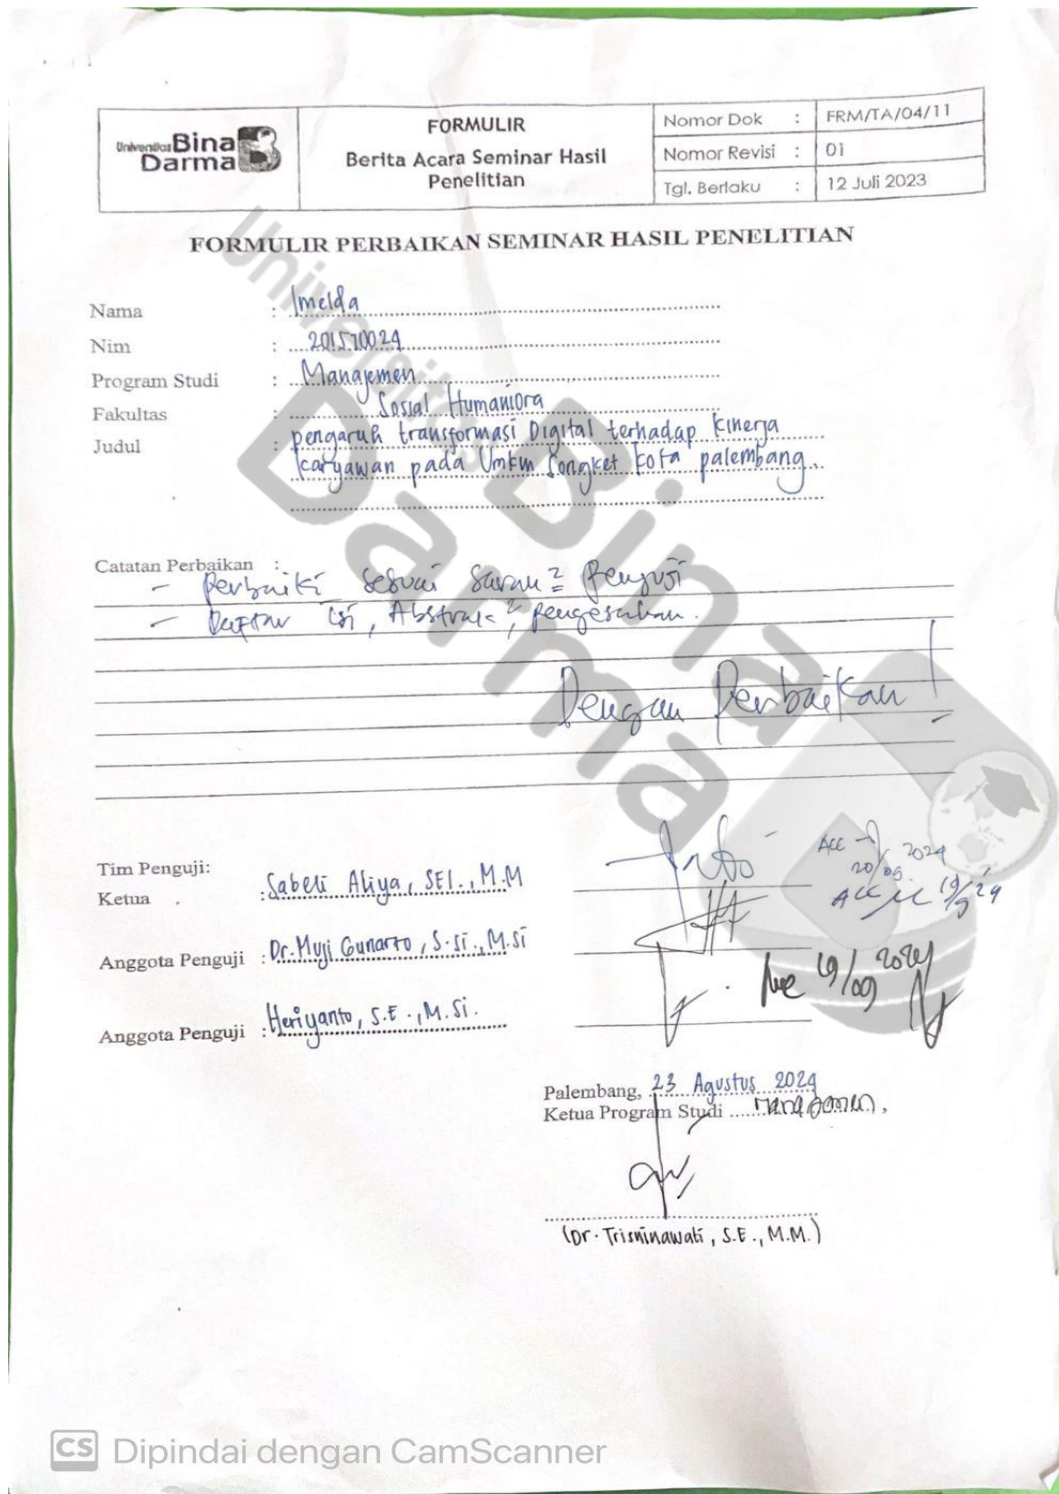 Universitas Bina Darma
FORMULIR
Berita Acara Seminar Hasil
Penelitian
Nomor Dok : FRM/TA/04/11
Nomor Revisi : 01
Tgl. Berlaku : 12 Juli 2023
FORMULIR PERBAIKAN SEMINAR HASIL PENELITIAN
Nama : Imelda
Nim : 201510024
Program Studi : Manajemen
Fakultas : Sosial Humaniora
Judul : pengaruh transformasi Digital terhadap kinerja
karyawan pada Umkm Songket kota palembang
Catatan Perbaikan :
- Perbaiki sesuai saran² Penguji
- Daftar isi, Abstrak², pengesahan.
Dengan Perbaikan!
Tim Penguji:
Ketua : Sabeli Aliya, SEI., M.M
Acc
20/09 2024
Acc 19/9 24
Anggota Penguji : Dr. Muji Gunarto, S.Si., M.Si
19/09 2024
Anggota Penguji : Heriyanto, S.E., M.Si.
Palembang, 23 Agustus 2024
Ketua Program Studi Manajemen,
(Dr. Trisninawati, S.E., M.M.)
Universitas
Bina
Darma
CS Dipindai dengan CamScanner